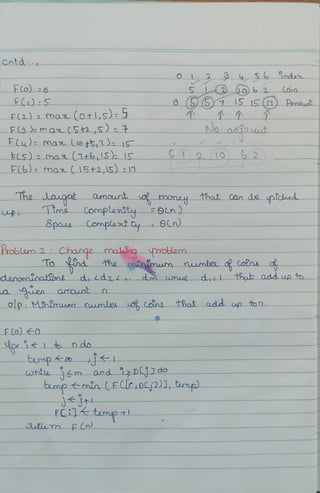 Cntd...,
0 1 2 3 4 5 6 index
5 1 2 10 6 2 Coin
0 5 5 7 15 15 17 Amount
F(0) = 0
F(1) = 5
F(2) = max (0+1, 5) = 5
F(3) = max (5+2, 5) = 7
F(4) = max (10+5, 7) = 15
F(5) = max (7+6, 15) = 15
F(6) = max (15+2, 15) = 17
No adjacent
5 1 2 10 6 2
The largest amount of money that can be picked
up.
Time complexity = Θ(n)
Space complexity = Θ(n)
Problem 2: Change making problem
To find the minimum number of coins of
denominations d1 < d2 < .. dm where d1 = 1 that add up to
a given amount n
o/p: Minimum number of coins that add up to n.
F(0) ← 0
for i ← 1 to n do
temp ← ∞ , j ← 1
while j ≤ m and i ≥ D[j] do
temp ← min (F([i-D[j])], temp)
j ← j+1
F[i] ← temp+1
return F(n)